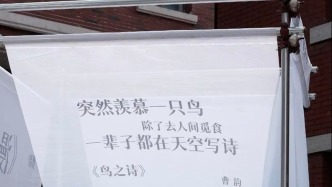 突然羡慕一只鸟
除了去人间觅食
一辈子都在天空写诗
《鸟之诗》
曹韵